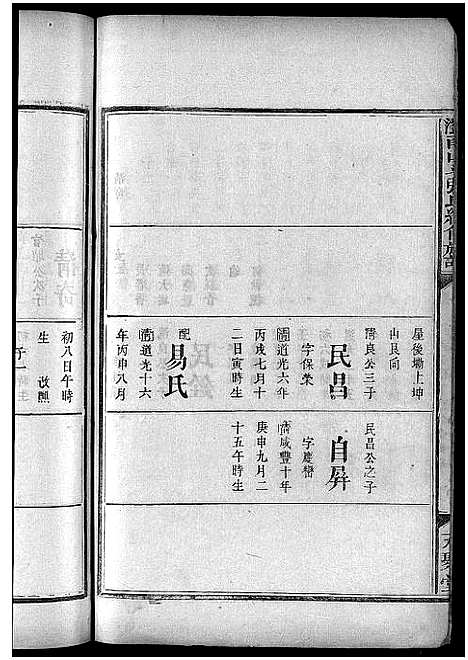 屋後坳上坤
山艮向
清良公三子
民昌
字保榮
清道光六年
丙戌七月十
二日寅時生
配
易氏
清道光十六
年丙申八月
初八日午時
生 放照
子一
民昌公之子
自屏
字慶巒
清咸豐十年
庚申九月二
十五午時生